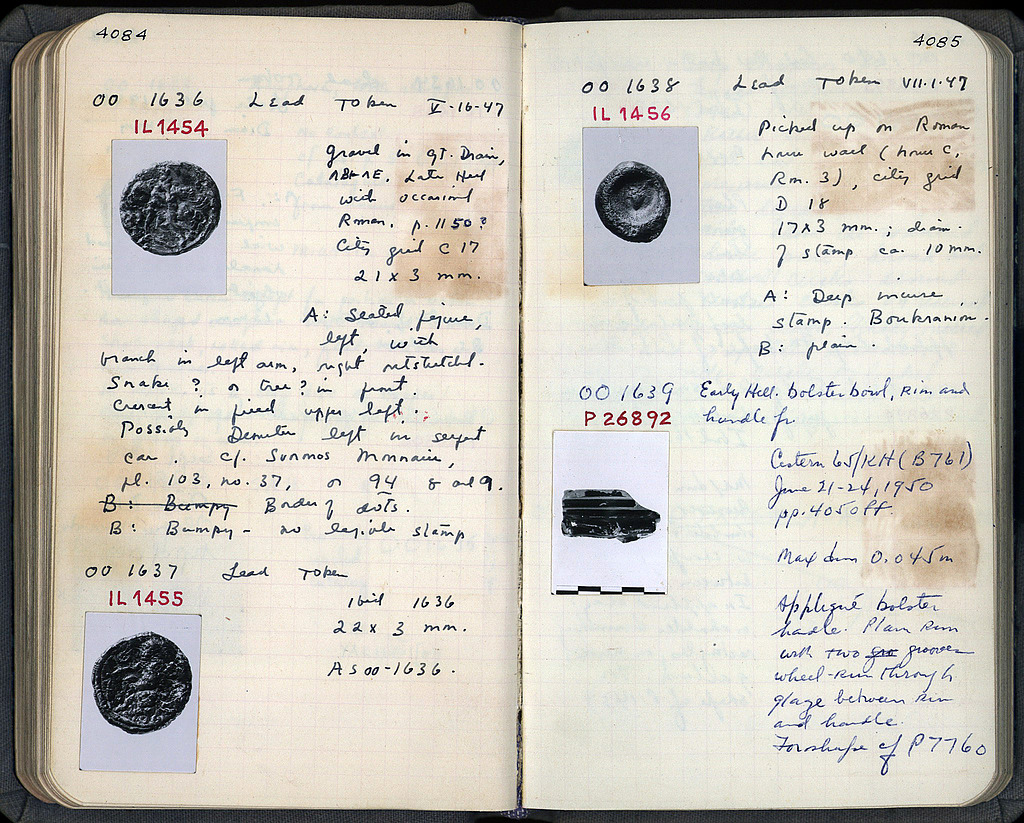 4084
OO 1636 Lead Token V-16-47
IL 1454
Gravel in Gt. Drain,
Late Hell
with occasional
Roman, p. 1150?
City grid C 17
21 x 3 mm.
A: Seated figure,
left, with
branch in left arm, right outstretched.
Snake? or tree? in front.
Crescent in field upper left.
Possibly Demeter left in serpent
car. cf. Svoronos Monnaies,
pl. 103, no. 37, or 94
B: Bumpy Border of dots.
B: Bumpy - no legible stamp
OO 1637 Lead Token
IL 1455
Ibid 1636
22 x 3 mm.
AS OO-1636.
4085
OO 1638 Lead Token VII-1-47
IL 1456
Picked up on Roman
house wall (house C,
Rm. 3), city grid
D 18
17x3 mm.; diam.
of stamp ca. 10 mm.
A: Deep incuse
stamp. Boukranion.
B: plain.
OO 1639 Early Hell. bolster bowl, rim and
P 26892
handle fr.
Cistern 65/KH (B 761)
June 21-24, 1950
pp. 4050 ff.
Max dim 0.045 m
Appliqué bolster
handle. Plain rim
with two gro grooves
wheel-run through
glaze between rim
and handle.
For shape cf P 7760